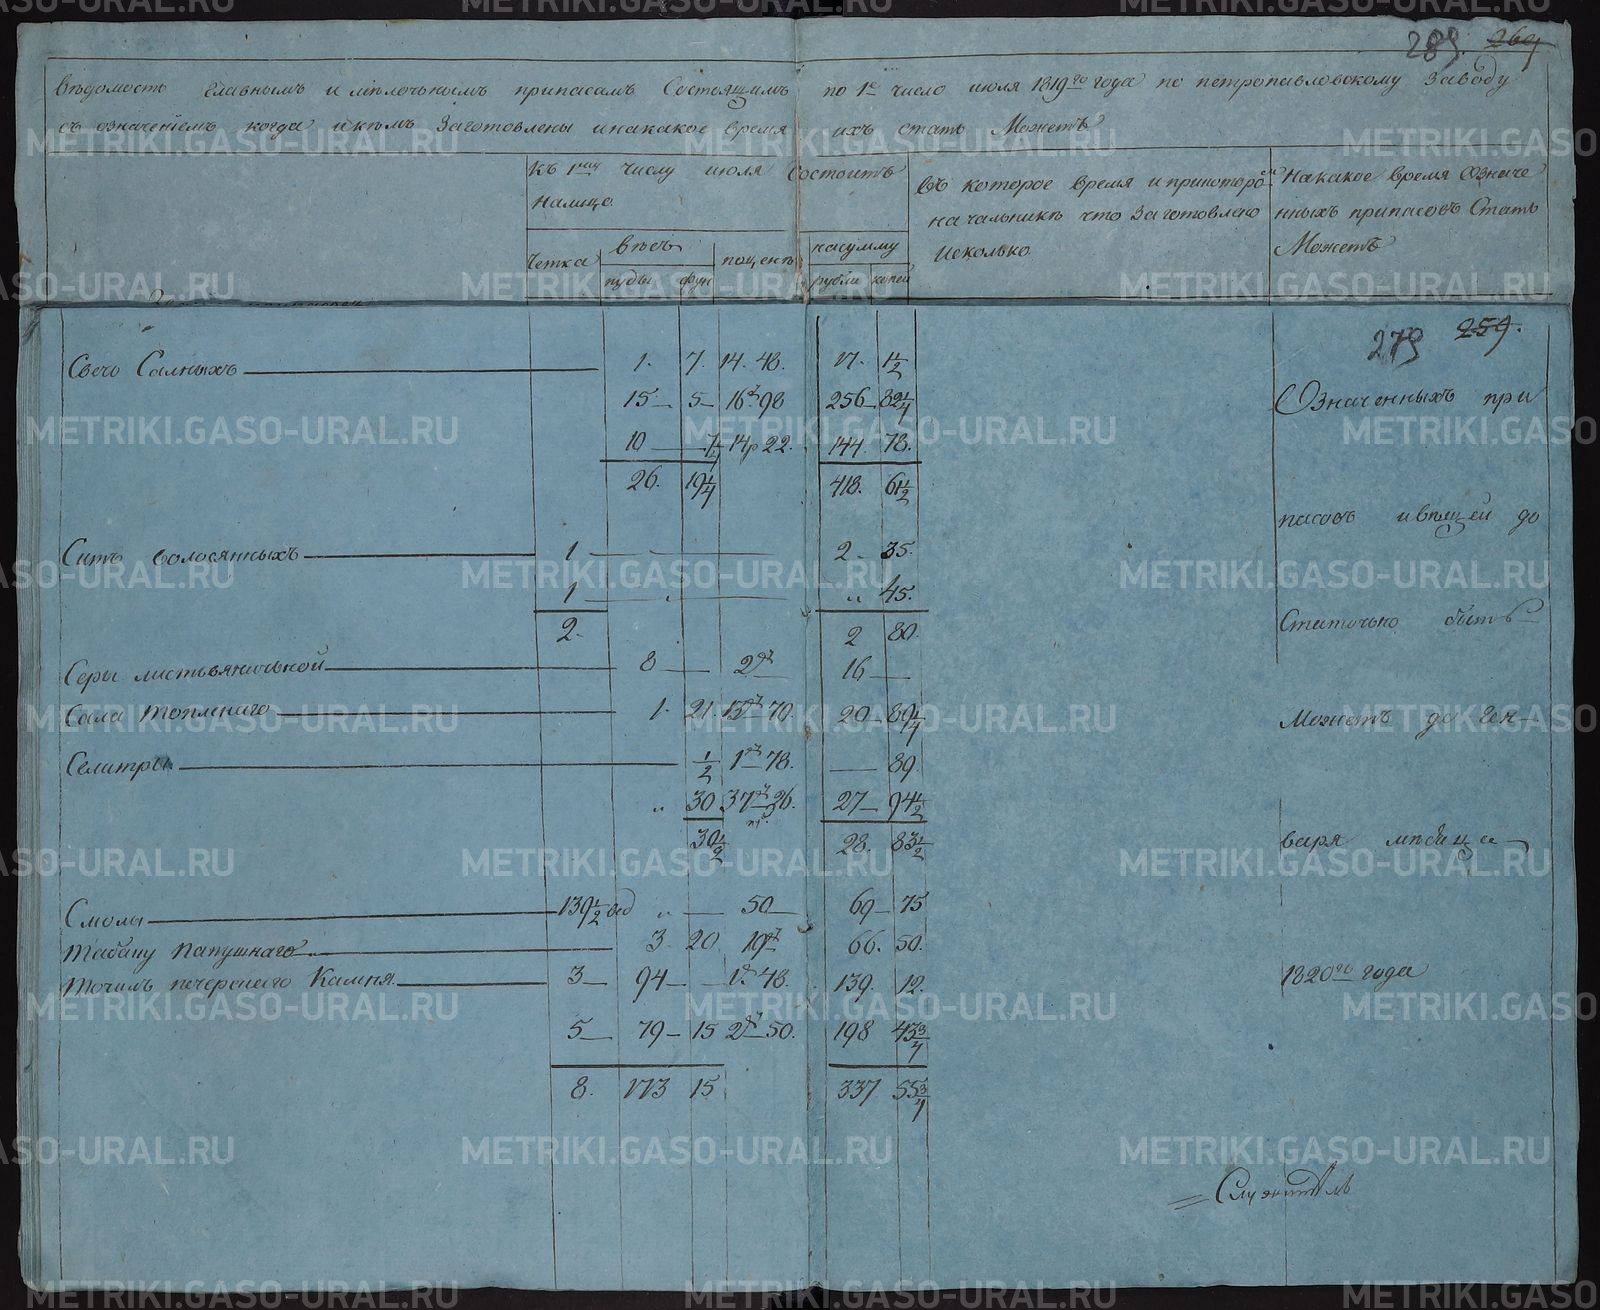 289. 269
Вѣдомость главнымъ и мѣлочьнымъ припасамъ Состоящимъ по 1е число июля 1819го года по петропавловскому заводу
съ означенiемъ когда и кѣмъ Заготовлены и накакое время ихъ стать Можетъ
Къ 1му числу июля Состоитъ
налицо
Четка
вѣсъ
пуды
фун
поцене
на сумму
рубли
копей
Въ которое время и прикоторомъ
начальнике что Заготовлено
и сколько
На какое время Означе
нныхъ припасовъ Стать
Можетъ
279 259.
Свечь Салныхъ 1. 7. 14. 48. 17. 1 1/2
15 5 16 р 98 256 82 1/4
10 1/4 14 р 22. 144. 78.
26. 19 1/4 418. 61 1/2
Ситъ волосянныхъ 1 2 35.
1 „ 45.
2. 2 80.
Серы листьвяничьной 8 2 р 16
Сала топленаго 1. 21. 13 р 70. 20 89 1/4
Селитры 1/2 1 р 78. 89.
„ 30 37 р 26. 27 94 1/2
30 1/2 28. 83 1/2
Смолы 139 1/2 вед „ 50 69 75
Табаку папушнаго 3 20 19 р 66. 50.
Точилъ печерскаго Камня 3 94 1 р 48. 139. 12.
5 79 15 2 р 50. 198 43 3/4
8. 173 15 337 55 3/4
Означенныхъ при
пасовъ и вѣщей до
Статочно быть
Можетъ до ген
варя мѣсяца
1820го года
Служитель